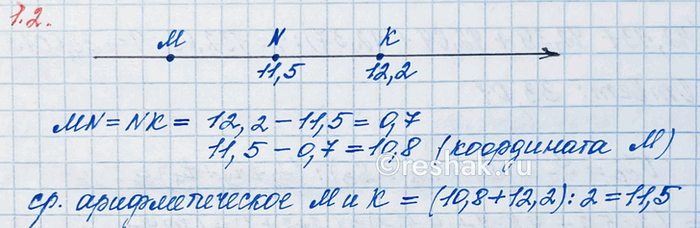 1.2.
M N K
11,5 12,2
MN = NK = 12,2 - 11,5 = 0,7
11,5 - 0,7 = 10,8 (координата M)
©reshak.ru
ср. арифметическое M и K = (10,8 + 12,2) : 2 = 11,5